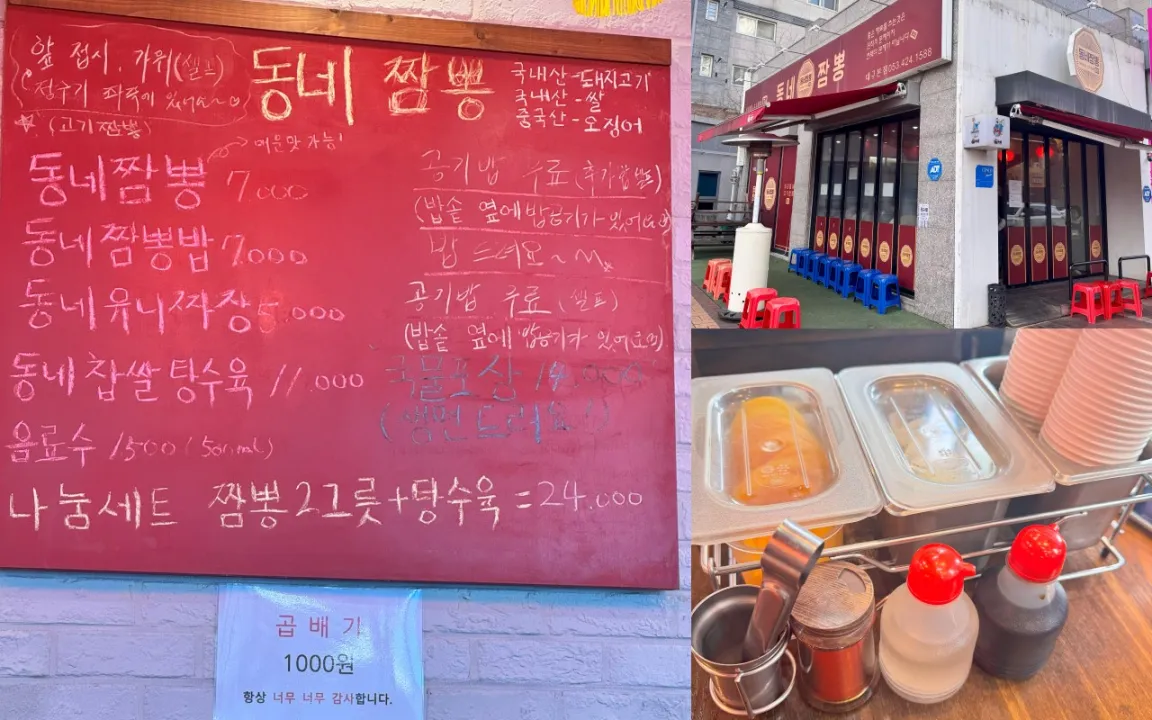 앞 접시, 가위(셀프)
정수기 좌측에 있어요~
(고기짬뽕)
동네 짬뽕
국내산-돼지고기
국내산-쌀
중국산-오징어
매운맛 가능!
동네짬뽕 7.000
동네짬뽕밥 7.000
동네유니짜장 5.000
동네찹쌀탕수육 11.000
음료수 1500 (500ml)
나눔세트 짬뽕2그릇+탕수육=24.000
공기밥 무료(추가밥별도)
(밥솥 옆에밥공기가 있어요)
밥 드려요~
공기밥 무료 (셀프)
(밥솥 옆에 밥공기가 있어요)
국물포장
곱배기
1000원
항상 너무 너무 감사합니다.
동네 짬뽕
대구본점 053.424.1588
동네짬뽕
ADT